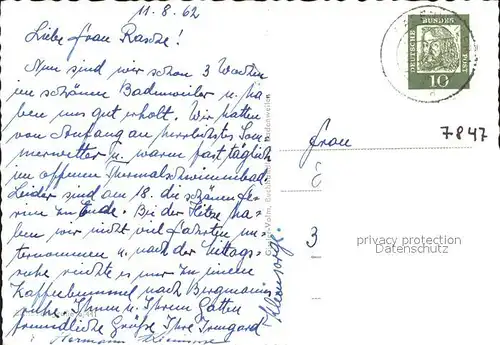 11.8.62
Liebe Frau Rasche!
Nun sind wir schon 3 Wochen
im schönen Badenweiler u. ha-
ben uns gut erholt. Wir hatten
von Anfang an herrlichstes Som-
merwetter u. waren fast täglich
im offenen Thermalschwimmbad.
Leider sind am 18. die schönen Fe-
rien zu Ende. Bei der Hitze ha-
ben wir nicht viel Fahrten un-
ternommen u. nach der Mittags-
ruhe reichte es nur zu einem
Kaffeebummel nach
Ihnen u. Ihrem Gatten
freundliche Grüße Ihre Irmgard
Hermann
DEUTSCHE
BUNDES
POST
10
7847
Frau
3
privacy protection
Datenschutz